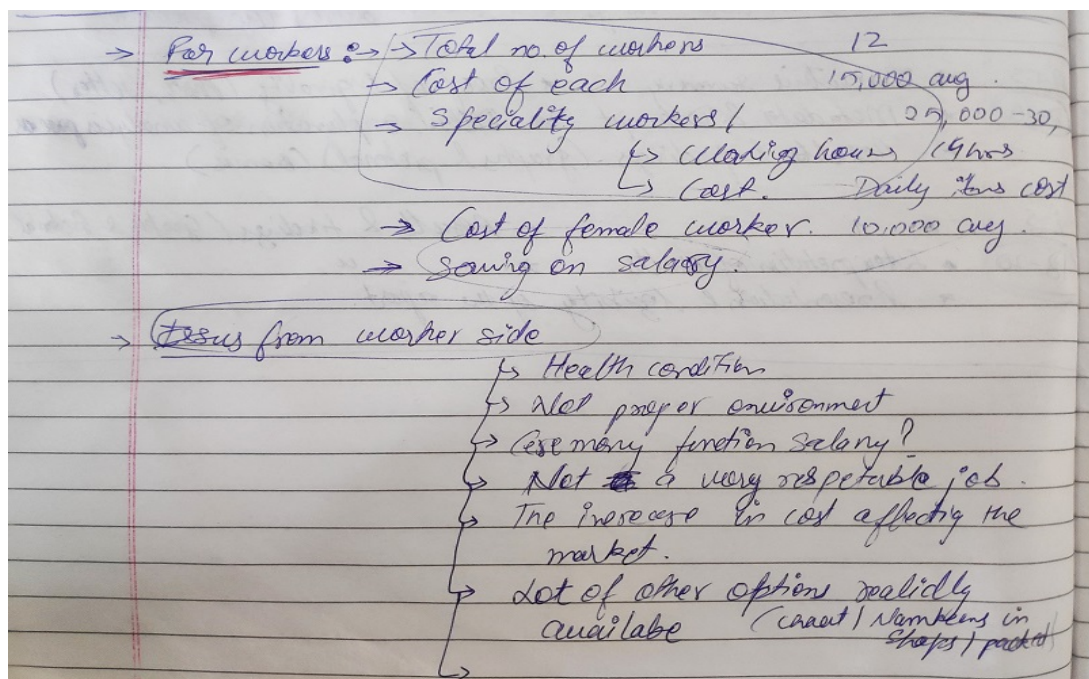 → For workers :→ → Total no. of workers 12
→ Cost of each 15,000 avg.
→ Speciality workers / 25,000-30,
↳ Working hours 14hrs
↳ Cost. Daily cost
→ Cost of female worker. 10,000 avg.
→ Saving on salary.
→ Issus from worker side
↳ Health condition
↳ Not proper environment
→ Ceremony function salary?
→ Not a very respetable job.
→ The increase in cost affectig the
market.
→ Lot of other options
availabe (chaat / Namkeens in
shops / packed)